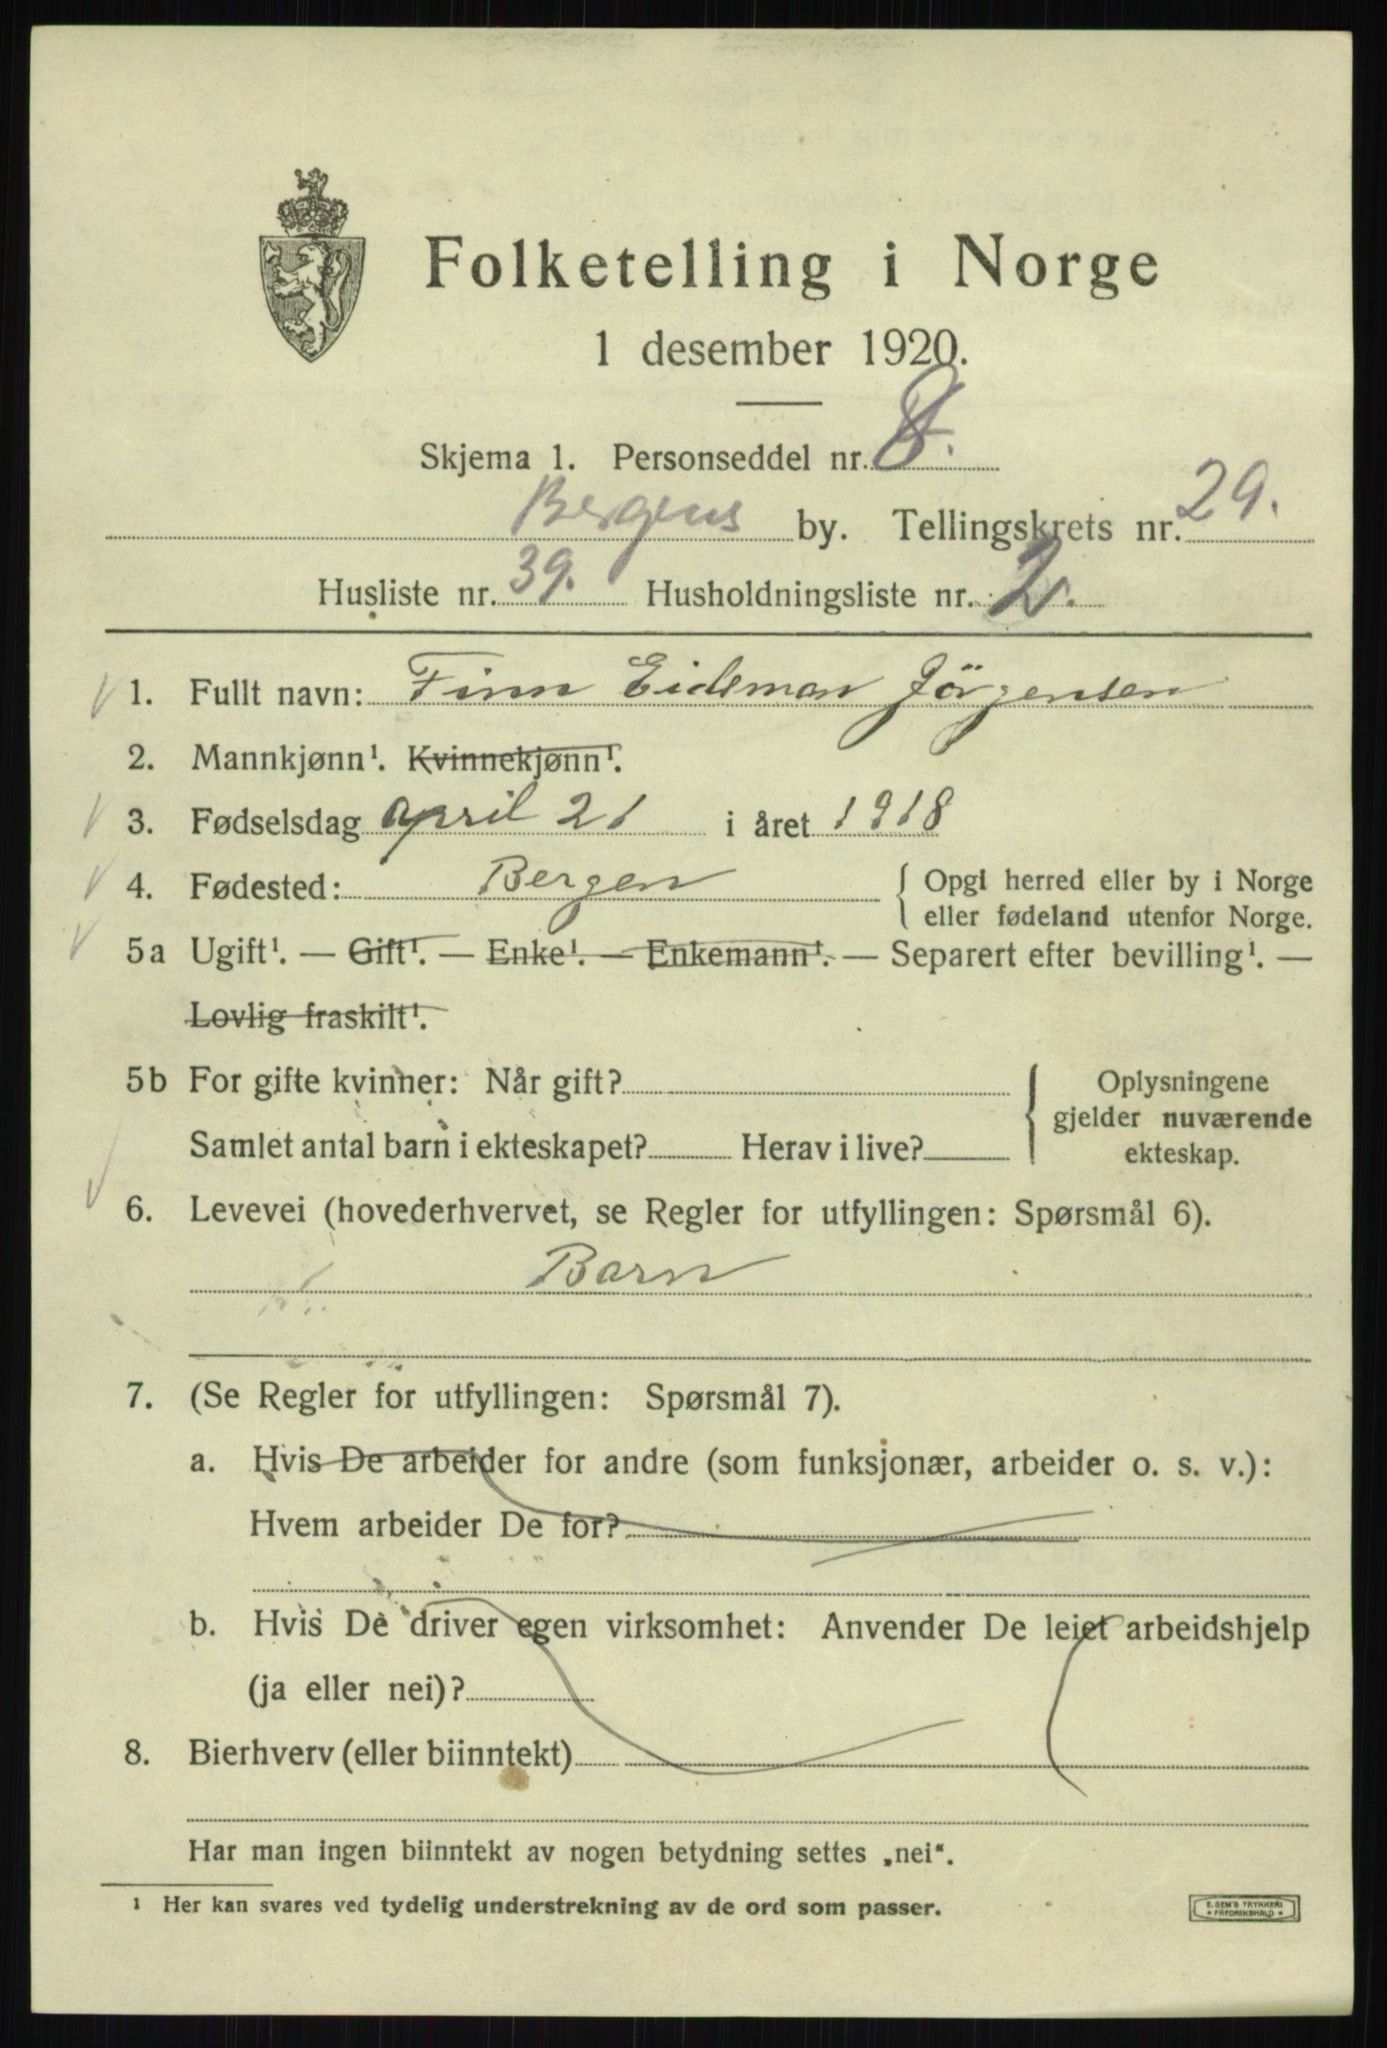 Folketelling i Norge
1 desember 1920.
Skjema 1. Personseddel nr. 8.
Bergens by. Tellingskrets nr. 29.
Husliste nr. 39. Husholdningsliste nr. 2.
1. Fullt navn: Finn Eidsman Jörgensen
2. Mannkjønn¹. Kvinnekjønn¹.
3. Fødselsdag april 21 i året 1918
4. Fødested: Bergen { Opgi herred eller by i Norge
eller fødeland utenfor Norge.
5a Ugift¹. — Gift¹. — Enke¹. — Enkemann¹. — Separert efter bevilling¹. —
Lovlig fraskilt¹.
5b For gifte kvinner: Når gift?
Samlet antal barn i ekteskapet? Herav i live?
{ Oplysningene
gjelder nuværende
ekteskap.
6. Levevei (hovederhvervet, se Regler for utfyllingen: Spørsmål 6).
Barn
7. (Se Regler for utfyllingen: Spørsmål 7).
a. Hvis De arbeider for andre (som funksjonær, arbeider o. s. v.):
Hvem arbeider De for?
b. Hvis De driver egen virksomhet: Anvender De leiet arbeidshjelp
(ja eller nei)?
8. Bierhverv (eller biinntekt)
Har man ingen biinntekt av nogen betydning settes „nei“.
¹ Her kan svares ved tydelig understrekning av de ord som passer.
E. SEM'S TRYKKERI
* FREDRIKSHALD *